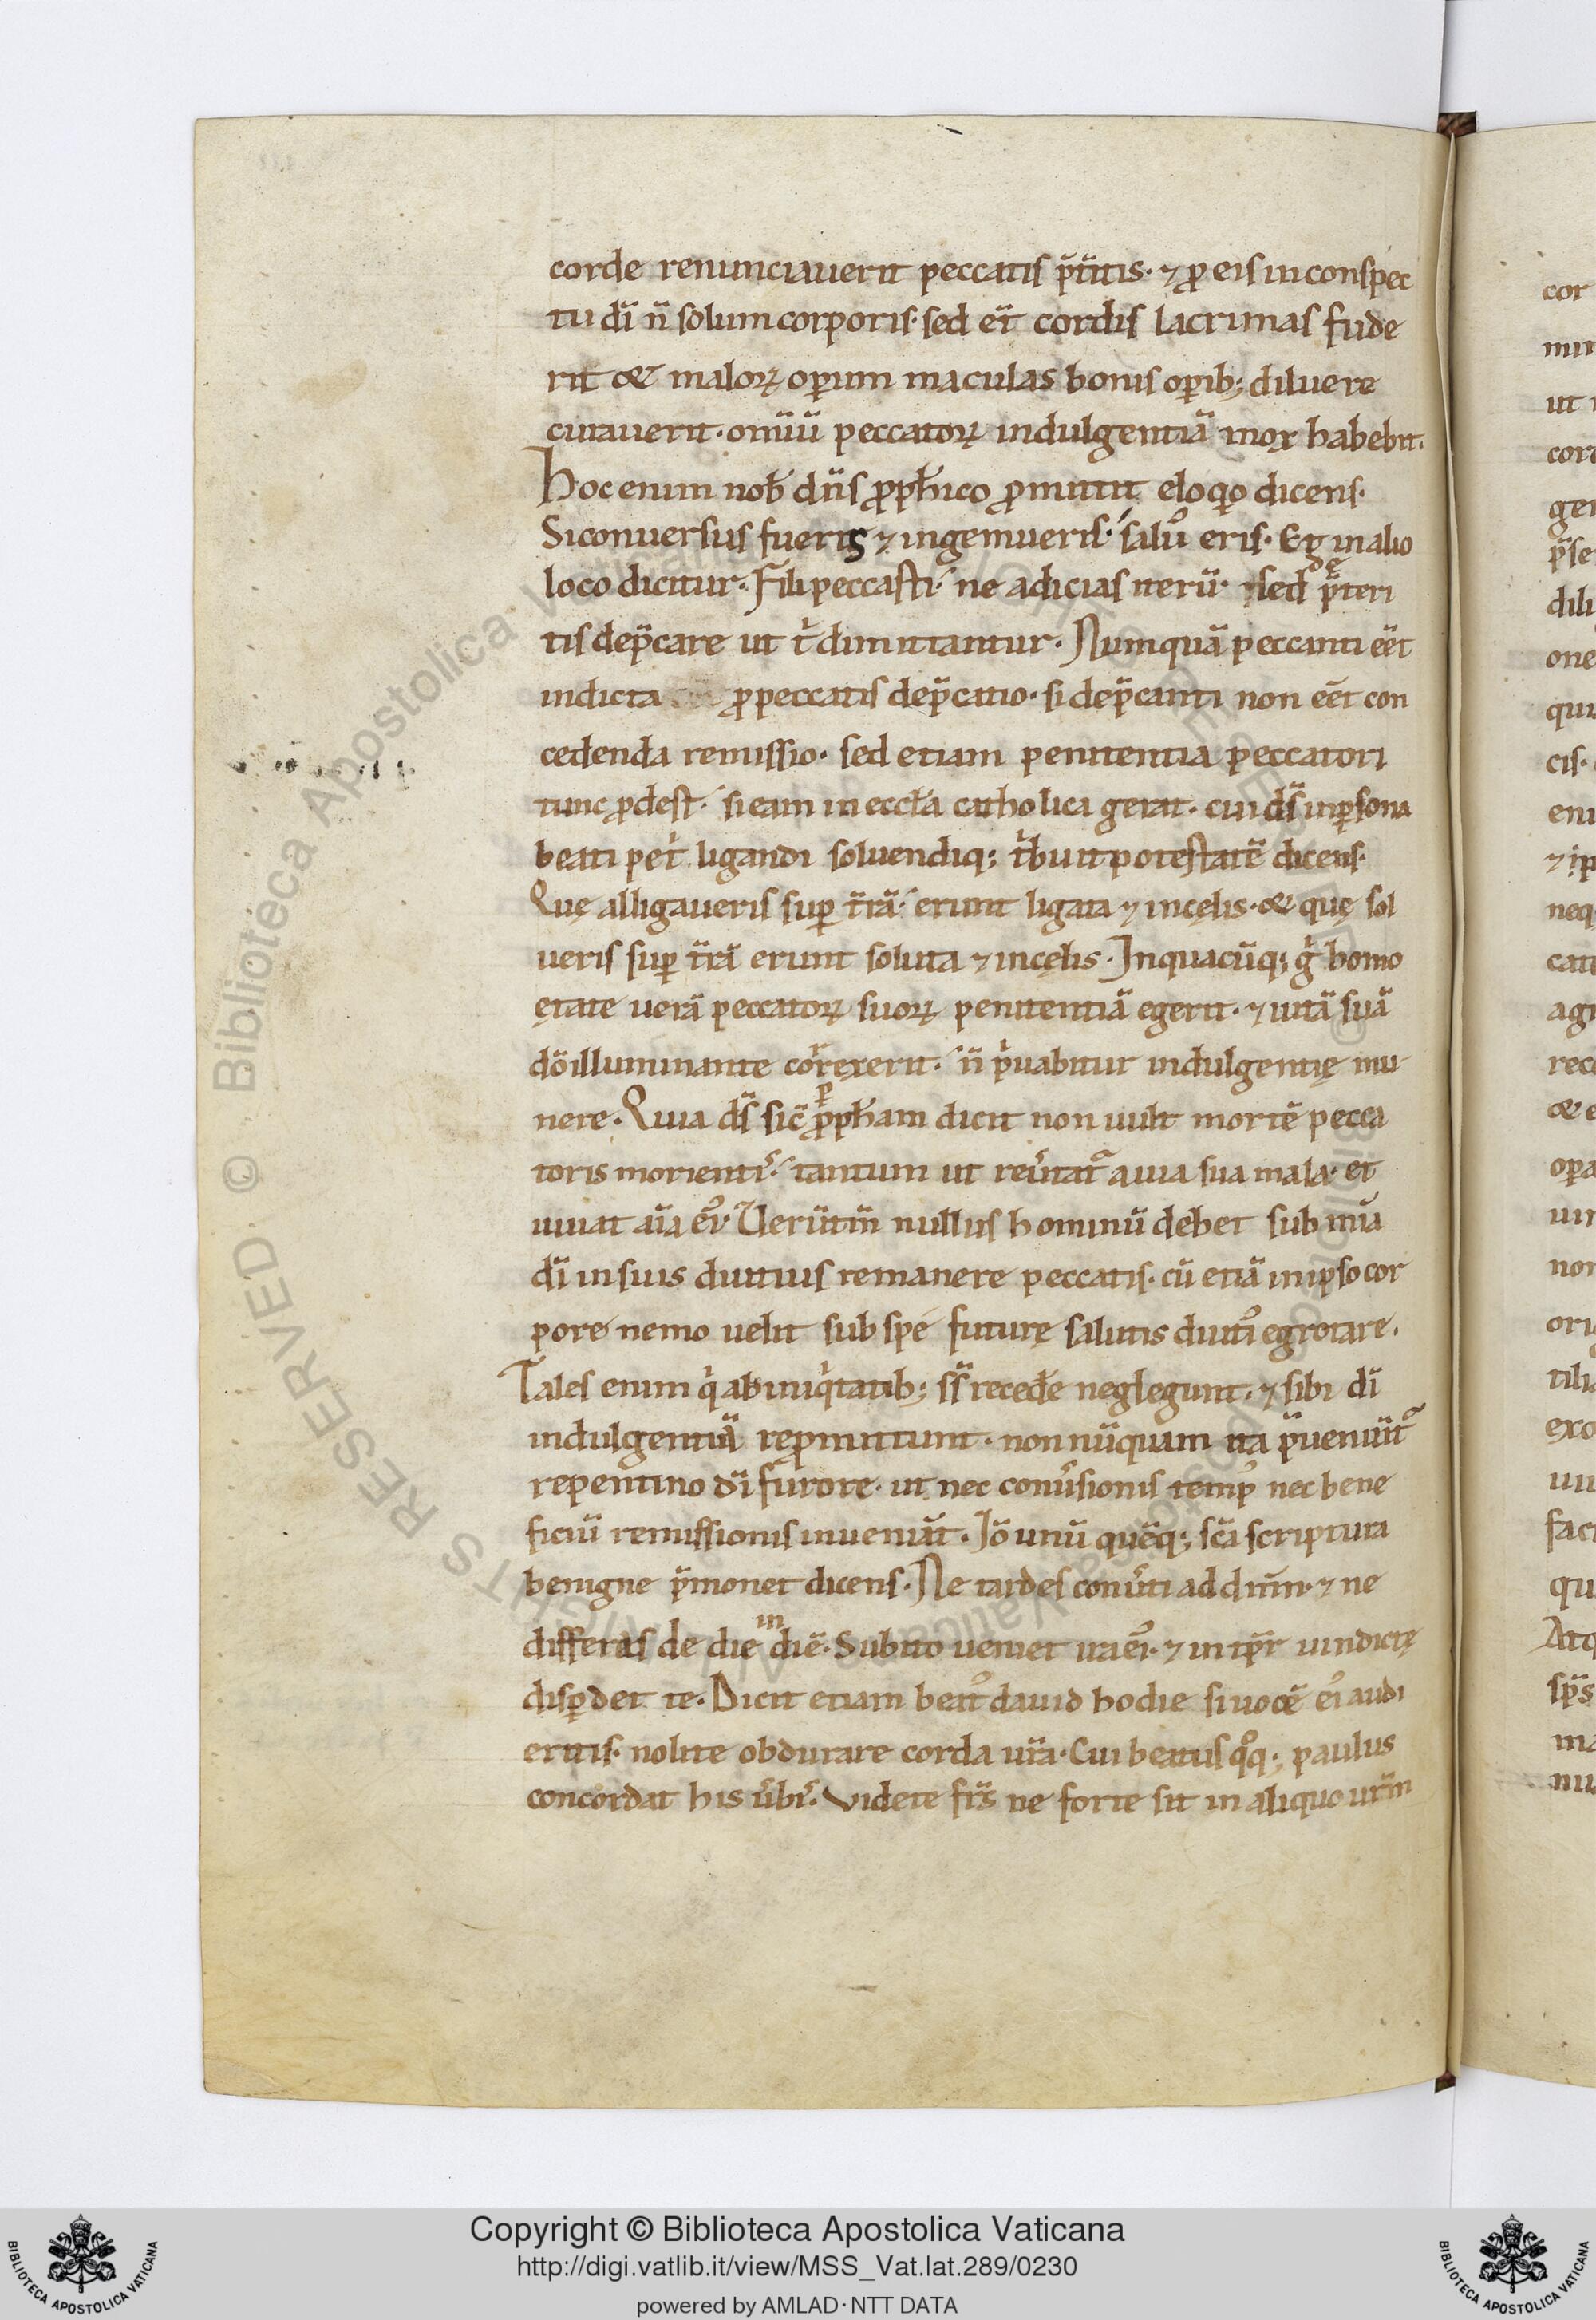 corde renunciauerit peccatis p̄t̄itis· ⁊ ꝓ eis in conspec
tu dī n̄ solum corporis· sed et̄ cordis lacrimas fude
rit & maloꝝ oꝑum maculas bonis oꝑib; diluere
curauerit· om̄iū peccatoꝝ indulgentiā mox habebit·
Hoc enim nob̄ dn̄s ꝓph̄ico ꝓmittit eloqͥo dicens·
Si conuersus fueris ⁊ ingemueris· saluꝰ eris· Et in alio
loco dicitur· Fili peccasti· ne adicias iterū· sed ⁊ de p̄teri
tis dep̄care ut tͥ dimittantur· Numquā peccanti eēt
indicta ꝓ peccatis dep̄catio· si dep̄canti non eēt con
cedenda remissio· sed etiam penitentia peccatori
tunc ꝓdest· si eam in eccła catholica gerat· cui ds̄ in ꝑsona
beati petͥ ligandi soluendiq; tͥbuit potestatē dicens·
Quę alligaueris suꝑ tr̄ā· erunt ligata ⁊ in cęlis· & quę sol
ueris suꝑ tr̄ā erunt soluta ⁊ in cęlis· In quacūq; gͥ homo
ętate uerā peccatoꝝ suoꝝ penitentiā egerit· ⁊ uitā suā
dō illuminante correxerit· n̄ pͥuabitur indulgentię mu-
nere· Quia ds̄ sic̄ ꝑ ꝓph̄am dicit non uult mortē pecca
toris morientiˢ· tantum ut reūtatᷣ a uia sua mala· et
uiuat aīa eiꝰ· Uerūtm̄ nullus hominū debet sub mīa
dī in suis diutius remanere peccatis· cū etiā in ipso cor
pore nemo uelit sub spe futurę salutis diutiꝰ egrotare·
Tales enim qͥ ab iniqͥtatib; s̄s recedē neglegunt· ⁊ sibi dī
indulgentiā reꝓmittunt· non nūquam ita p̄ueniūtᷣ
repentino dī furore· ut nec conūsionis tempꝰ nec bene
ficiū remissionis inueniāt· Iō unū quēq; sc̄a scriptura
benigne p̄monet dicens· Ne tardes conūti ad dn̄m· ⁊ ne
differas de die in diē· Subito ueniet ira eiꝰ· ⁊ in tp̄r uindictę
disꝑdet te· Dicit etiam beatꝰ dauid hodie si uocē eiꝰ audi
eritis· nolite obdurare corda ur̄a· Cui beatus qͦq; paulus
concordat his ūbiˢ· Videte fr̄s ne forte sit in aliquo ur̄m
cor
ut
cor
dili
one
qui
cis·
eni
neq
cati
rec
& e
non
tili
exo
faci
qu
Atq
sp̄s
Copyright © Biblioteca Apostolica Vaticana
http://digi.vatlib.it/view/MSS_Vat.lat.289/0230
powered by AMLAD·NTT DATA
BIBLIOTECA APOSTOLICA VATICANA
BIBLIOTECA APOSTOLICA VATICANA